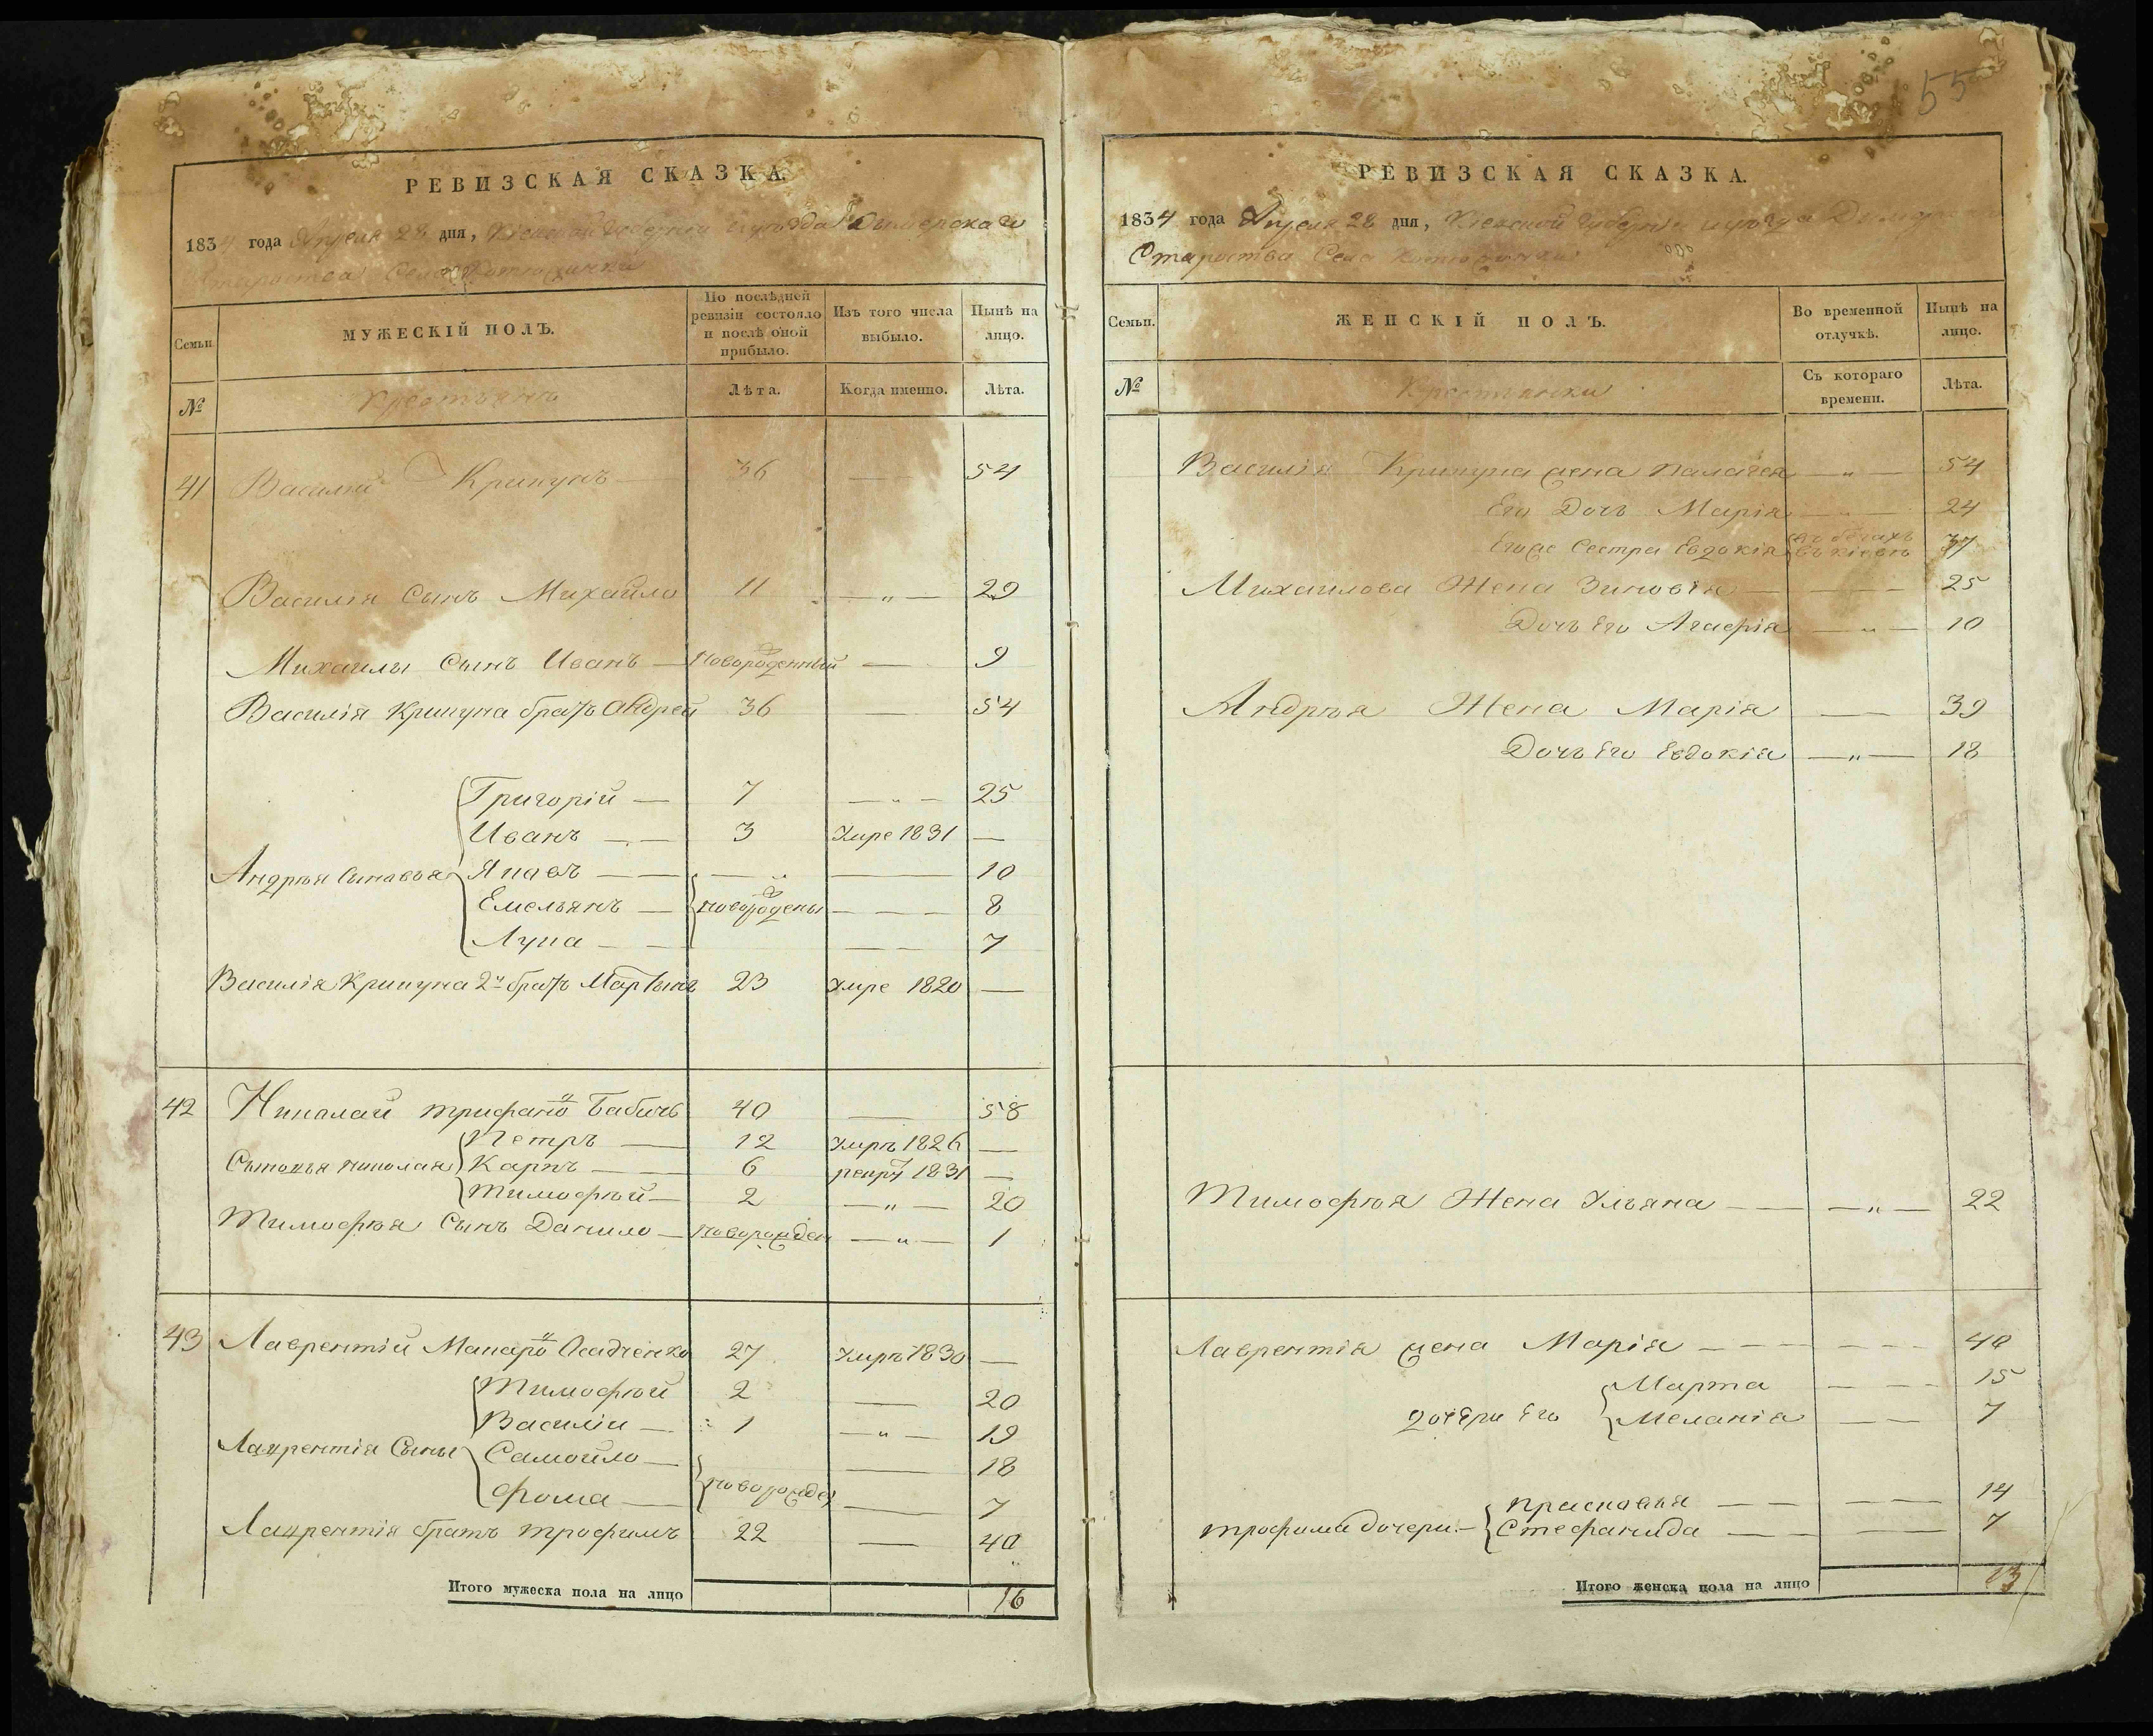 55
РЕВИЗСКАЯ СКАЗКА.
1834 года Апреля 28 дня, Кіевской Губерніи и уѣзда Дымерскаго
Староства Села
Семьи.
МУЖЕСКІЙ ПОЛЪ.
По послѣдней ревизіи состояло и послѣ оной прибыло.
Изъ того числа выбыло.
Нынѣ на лицо.
№
Крестьянъ
Лѣта.
Когда именно.
Лѣта.
41 Василій Крикунъ — 36 — 54
Василія Сынъ Михайло 11 — „ — 29
Михаилы Сынъ Иванъ — новорожденный — 9
Василія Крикуна братъ Андрей 36 — 54
Григорій — 7 — „ — 25
Иванъ — — 3 Умре 1831 —
Андрѣя Сыновья
— — 10
Емельянъ — новорождены — — — 8
Лупа — — — 7
Василія Крикуна 2й братъ Мартынъ 23 Умре 1820 —
42 Николай Трифано Бабичъ 40 — 58
Петръ — 12 Умръ 1826 —
Сыновья Николая Карпъ — 6 рекру 1831 —
Тимофѣй — 2 — „ — 20
Тимофѣя Сынъ Данило — новорожден — „ — 1
43 Лаврентій Макаро Осадченко 27 Умръ 1830 —
Тимофѣй 2 — 20
Василій — 1 — „ — 19
Лаврентія Сыны Самойло — — 18
Фома — новорожде — 7
Лаврентія братъ Трофимъ 22 — 40
Итого мужеска пола на лицо 16
РЕВИЗСКАЯ СКАЗКА.
1834 года Апреля 28 дня, Кіевской Губерніи и уѣзда
Староства Села
Семьи.
ЖЕНСКІЙ ПОЛЪ.
Во временной отлучкѣ.
Нынѣ на лицо.
№
Крестьянки
Съ котораго времени.
Лѣта.
Василія Крикуна жена Палагея — „ — 54
Его Дочь Марія — „ — 24
Егоже Сестра Евдокія 37
Михаилова Жена Зиновія — — — 25
Дочь Его Агафія — „ — 10
Андрѣя Жена Марія — 39
Дочь Его Евдокія — „ — 18
Тимофѣя Жена Ульяна — — — „ — 22
Лаврентія жена Марія — — — — — — 40
Марта — — — 15
дочери Его Меланія — — 7
Прасковья — — — — 14
Трофима дочери — Стефанида — — — 7
Итого женска пола на лицо 13